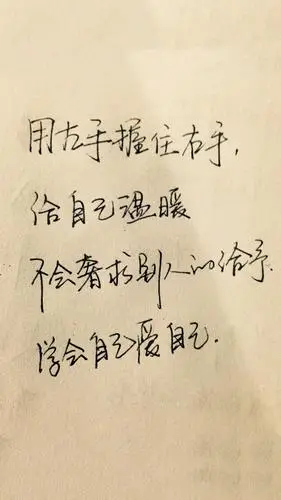 用左手握住右手，
给自己温暖
不会奢求别人的给予．
学会自己爱自己．